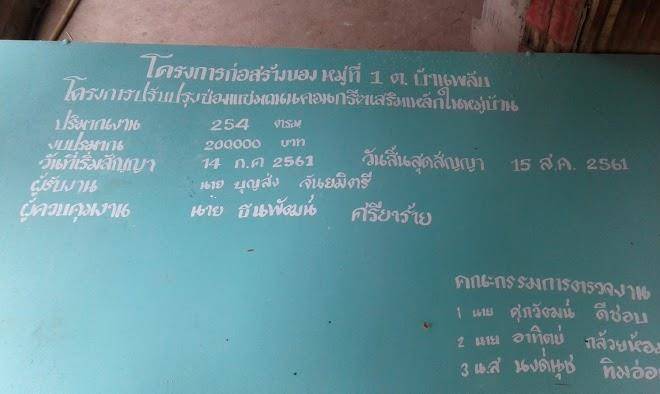 โครงการก่อสร้างของ หมู่ที่ 1 ต. บ้านพลับ
โครงการปรับปรุงซ่อมแซมถนนคอนกรีตเสริมเหล็กในหมู่บ้าน
ปริมาณงาน 254 ตารม
งบประมาณ 200000 บาท
วันที่เริ่มสัญญา 14 ก.ค 2561 วันสิ้นสุดสัญญา 15 ส.ค. 2561
ผู้รับงาน นาย บุญส่ง จันยมิตรี
ผู้ควบคุมงาน นาย ธนพัฒน์ ศรียาร้าย
คณะกรรมการตรวจงาน
1 นาย ศุภวัฒน์ ดีชอบ
2 นาย อาทิตย์ กล้วยห้อม
3 น.ส นงค์นุช